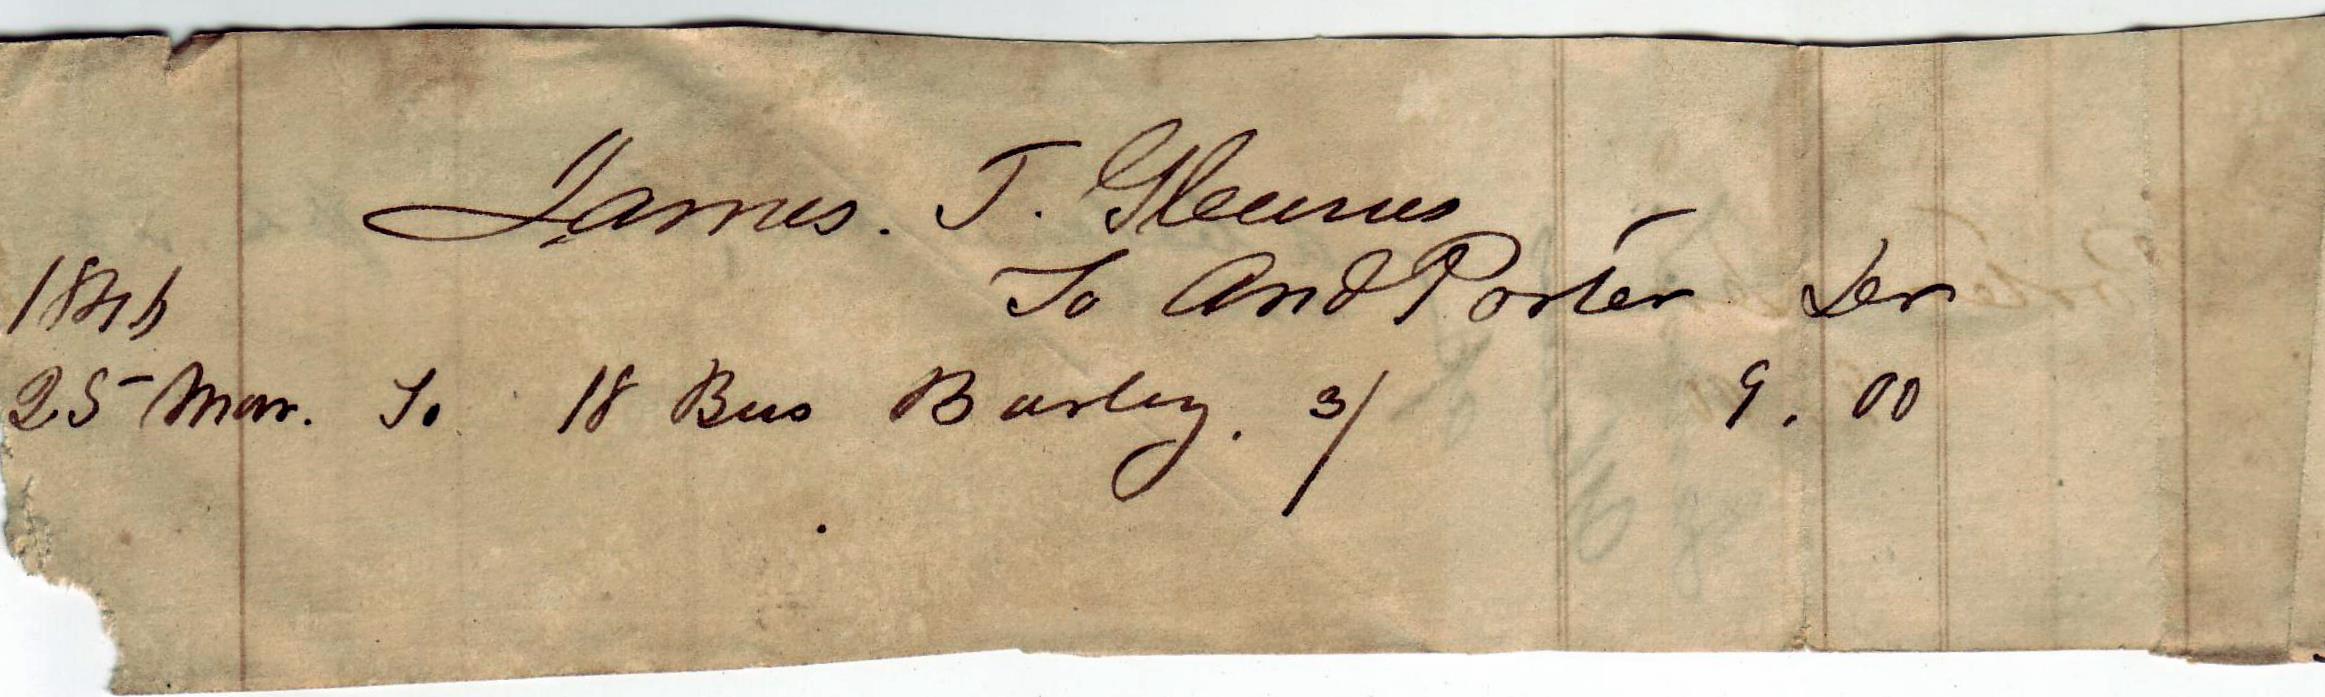 James. T. Glennes
1846
To And Porter Der
25 Mar. To 18 Bus Barley. 3/ 9. 00